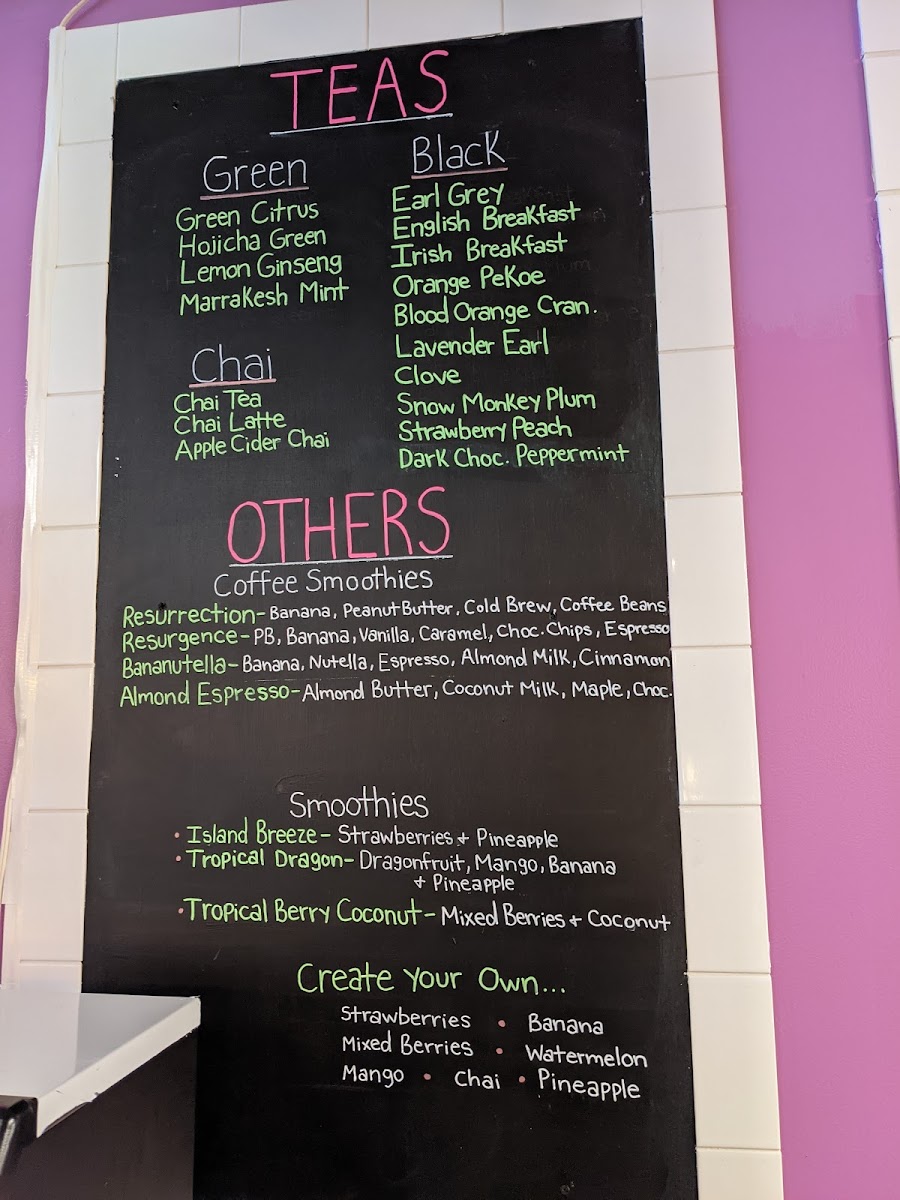 TEAS
Green
Green Citrus
Hojicha Green
Lemon Ginseng
Marrakesh Mint
Chai
Chai Tea
Chai Latte
Apple Cider Chai
Black
Earl Grey
English Breakfast
Irish Breakfast
Orange Pekoe
Blood Orange Cran.
Lavender Earl
Clove
Snow Monkey Plum
Strawberry Peach
Dark Choc. Peppermint
OTHERS
Coffee Smoothies
Resurrection- Banana, Peanut Butter, Cold Brew, Coffee Beans
Resurgence- PB, Banana, Vanilla, Caramel, Choc. Chips, Espresso
Bananutella- Banana, Nutella, Espresso, Almond Milk, Cinnamon
Almond Espresso- Almond Butter, Coconut Milk, Maple, Choc.
Smoothies
• Island Breeze- Strawberries + Pineapple
• Tropical Dragon- Dragonfruit, Mango, Banana
+ Pineapple
• Tropical Berry Coconut- Mixed Berries + Coconut
Create Your Own...
Strawberries • Banana
Mixed Berries • Watermelon
Mango • Chai • Pineapple